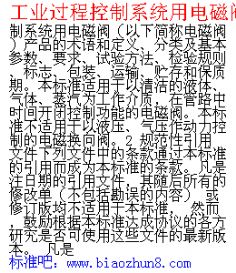 工业过程控制系统用电磁阀
制系统用电磁阀（以下简称电磁阀
）产品的术语和定义、分类及基本
参数、要求、试验方法、检验规则
、标志、包装、运输、贮存和保质
期。本标准适用于以清洁的液体、
气体、蒸汽为工作介质，在管路中
时间开闭控制功能的电磁阀。本标
准不适用于以液压、气压作动力控
制的电磁换向阀。2 规范性引用
文件下列文件中的条款通过本标准
的引用而成为本标准的条款。凡是
注日期的引用文件，其随后所有的
修改单（不包括勘误的内容）或
修订版均不适用于本标准，然而
，鼓励根据本标准达成协议的各方
研究是否可使用这些文件的最新版
本。 凡是
标准吧：www.biaozhun8.com